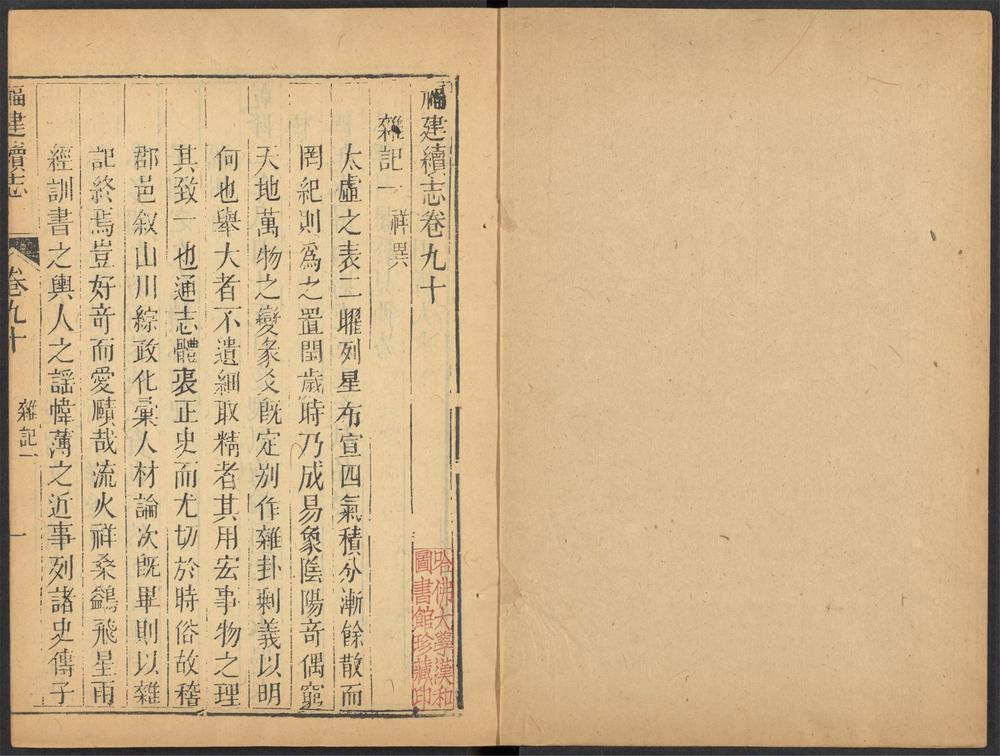 福建續志卷九十
雜記一 祥異
太虛之表二曜列星布宣四氣積分漸餘散而
罔紀則爲之置閏歲時乃成易象陰陽奇偶窮
天地萬物之變彖爻既定别作雜卦剩義以明
何也舉大者不遺細取精者其用宏事物之理
其致一也通志體裁正史而尤切於時俗故稽
郡邑叙山川綜政化彙人材論次既畢則以雜
記終焉豈好奇而愛賾哉流火祥桑鷁飛星雨
經訓書之輿人之謡幃薄之近事列諸史傳子
福建續志
卷九十
雜記一
一
哈佛大學漢和
圖書館珍藏印